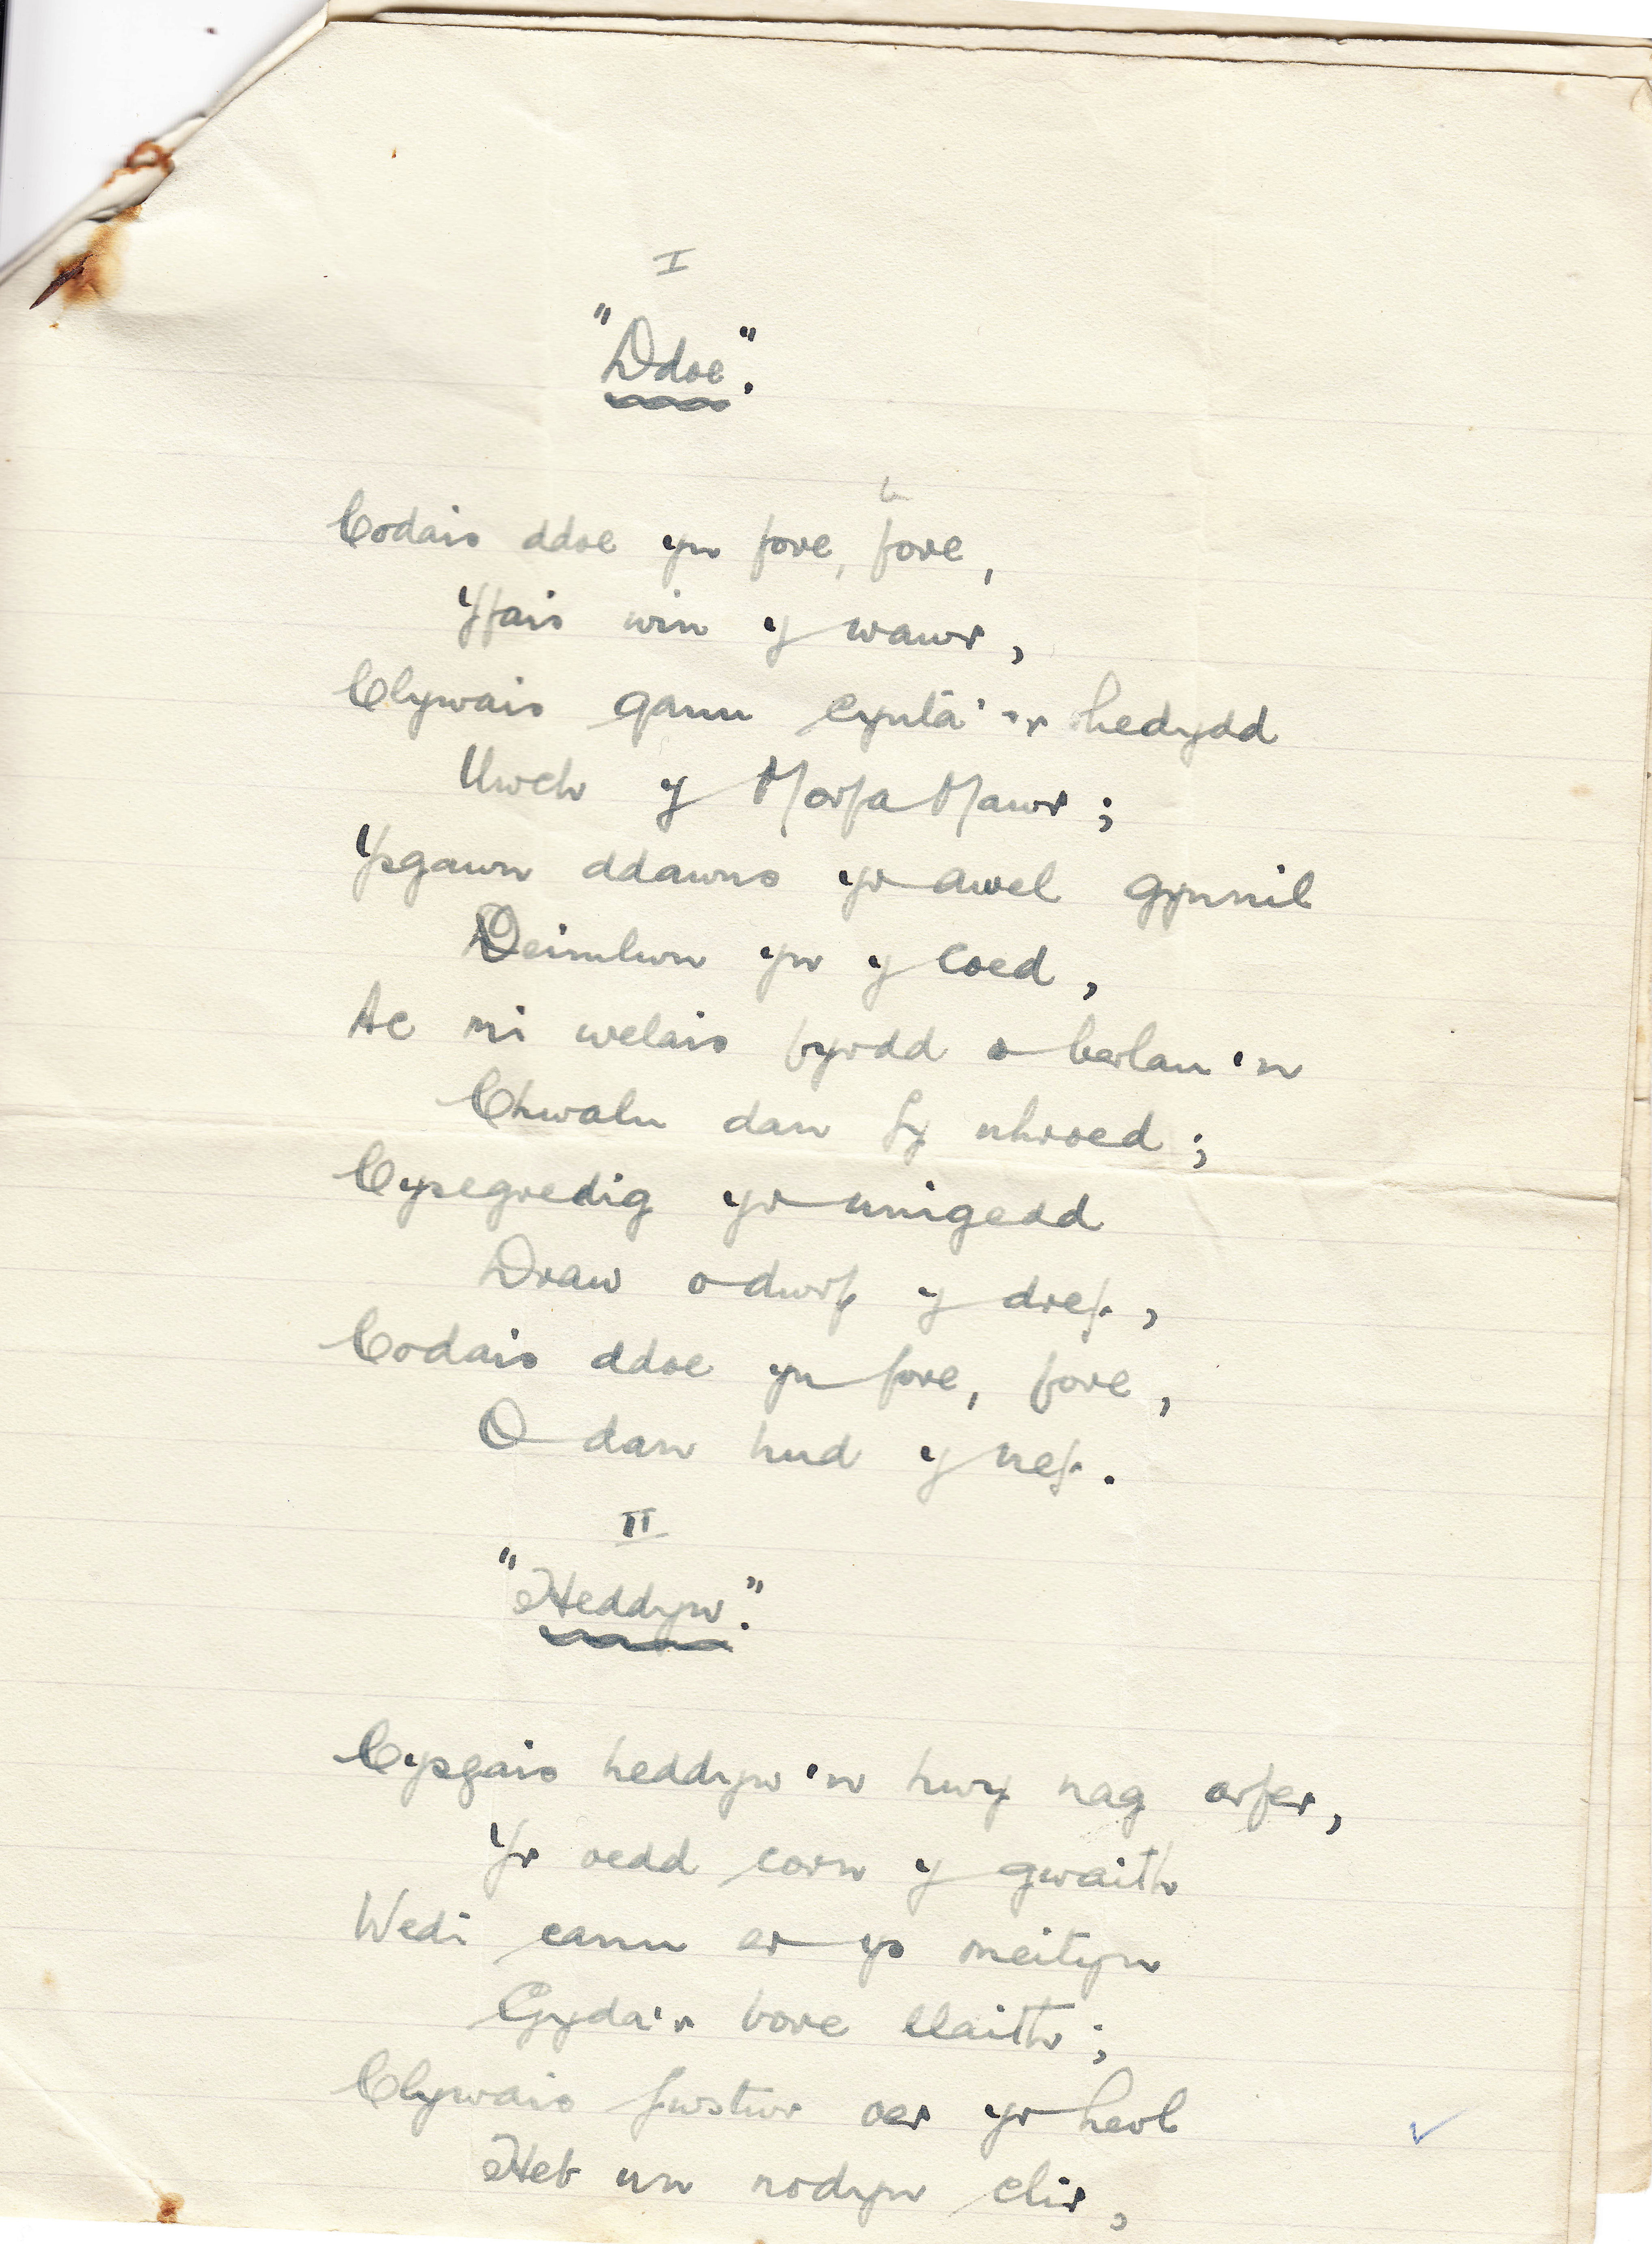 I
"Ddoe".
Codais ddoe yn fore, fore,
Yfais win y wawr,
Clywais ganu cynta'r hedydd
Uwch y Morfa Mawr;
Ysgawn ddawns yr awel gynnil
Deimlwn yn y coed,
Ac mi welais fyrdd o berlau'n
Chwalu dan fy nhroed;
Cysegredig yr unigedd
Draw o dwrf y dref,
Codais ddoe yn fore, fore,
O dan hud y nef.
II
"Heddyw".
Cysgais heddyw'n hwy nag arfer,
Yr oedd corn y gwaith
Wedi canu er ys meityn
Gyda'r bore llaith;
Clywais fwstwr oer yr heol
Heb un nodyn clir,